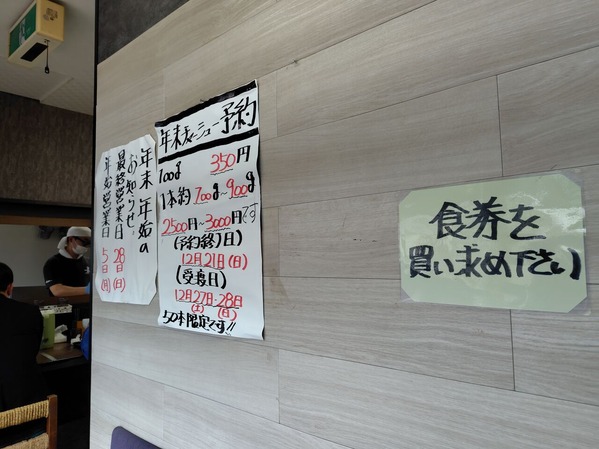 年末年始の
お知らせ。
最終営業日
28日(日)
年始営業日
5日(月)
年末チャーシュー予約
100g 350円
1本約700g~900g
2500円~3000円です
(予約終了日)
12月21日(日)
(受渡日)
12月27日・28日
(土) (日)
50本限定です!!
食券を
買い求め下さい